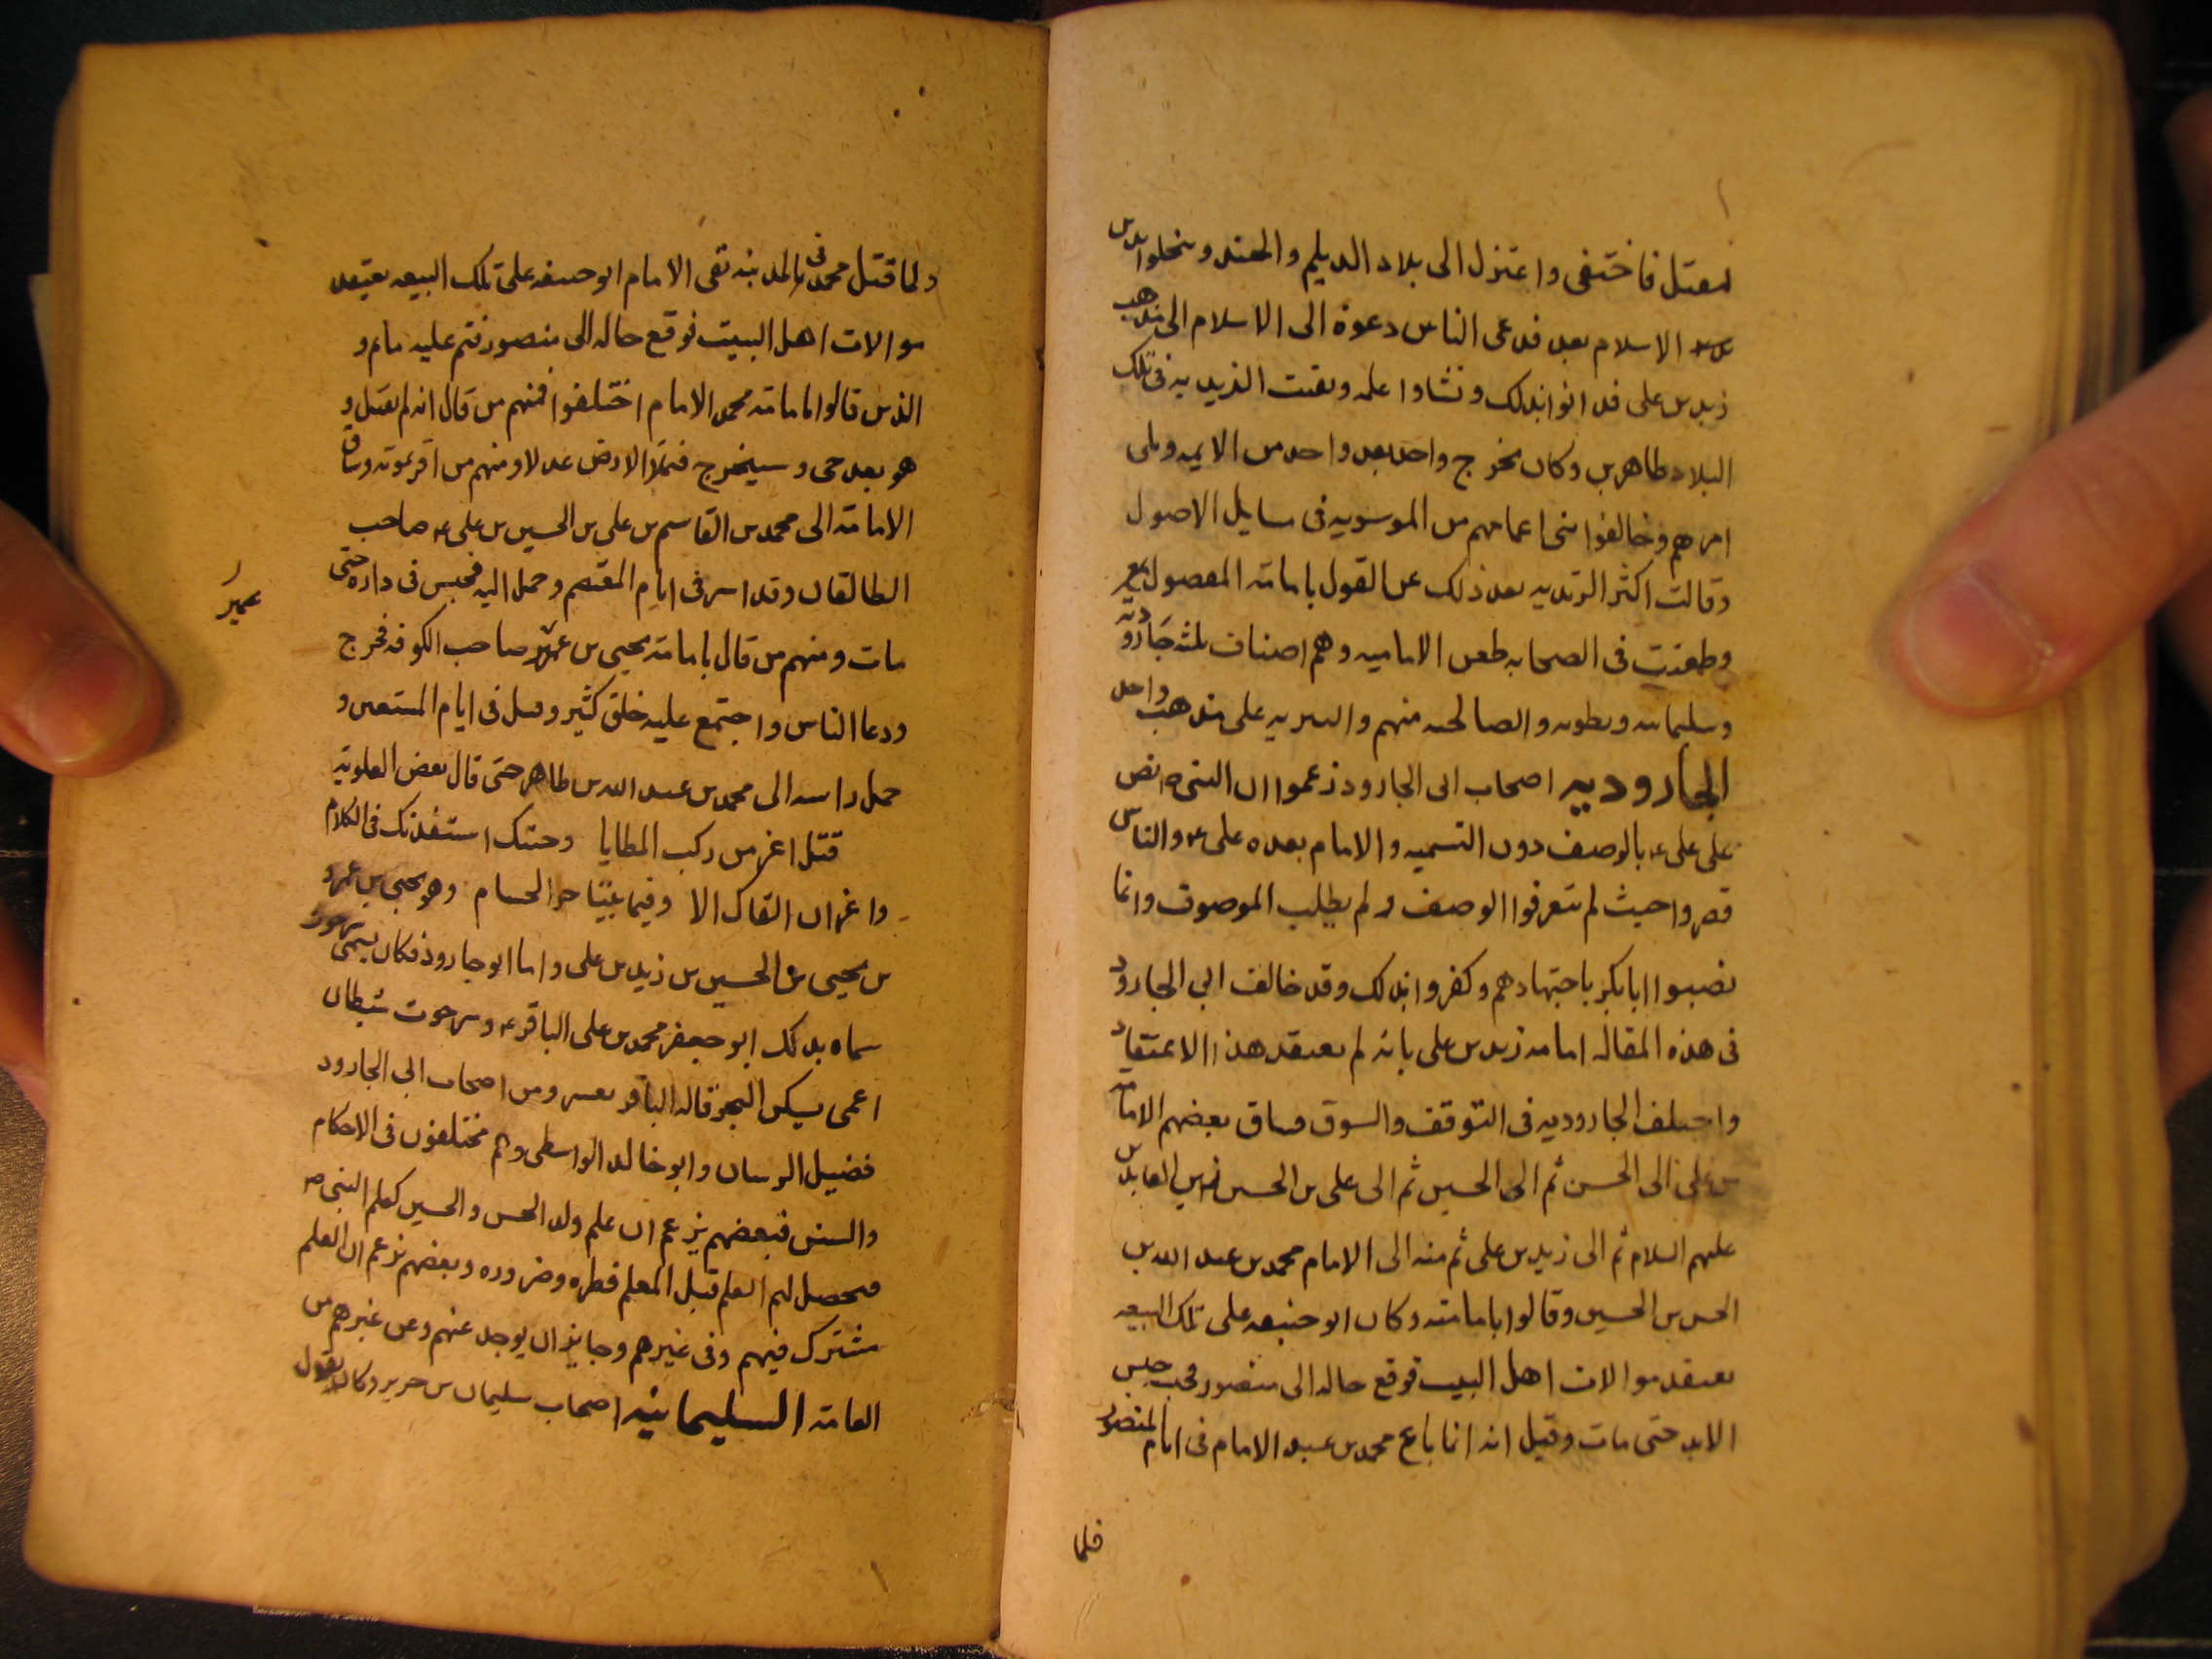 لىقتل فاختفى واعتزل الى بلاد الديلم والهند وىتحلوا بدىن
الاسلام بعد فدعى الناس دعوة الى الاسلام الى مذهب
زيد بن على فدانوا بذلك ونشاوا علىه وبقيت الزيديه فى تلك
البلاد ظاهرين وكان يخرج واحد بعد واحد من الايمه وىلى
امرهم وخالفوا بنى اعمامهم من الموسويه فى مسايل الاصول
وقالت اكثر الزيديه بعد ذلك عن القول بامامته المفضول
وطعنت فى الصحابه طعن الاماميه وهم اصناف ثلثه جارودىه
وسليمانىه وىطونه والصالحىه منهم والبىريه على مذهب واحد
الجاروديه اصحاب ابى الجارود زعموا ان النبى ص نص
على على ع بالوصف دون التسميه والامام بعده على ع والناس
قصروا حيث لم تتعرفوا الوصف ولم يطلب الموصوف وانما
نصبوا ابا بكر باجتهادهم وكفروا بذلك وقد خالف ابى الجارود
فى هذه المقاله امامه زيد بن على بانه لم يعتقد هذا الاعتقاد
واختلف الجاروديه فى التوقف والسوق فساق بعضهم الامامه
من على الى الحسن ثم الى الحسين ثم الى على بن الحسين زين العابدىن
علىهم السلام ثم الى زيد بن على ثم منه الى الامام محمد بن عبد الله بن
الحسن بن الحسين وقالوا بامامته وكان ابو حنيفه على تلك البيعه
يعتقد موالات اهل البيت فوقع حاله الى منصور فحبس حبس
الابد حتى مات وقيل انه انما باع محمد بن عبد الامام فى ايام المنصور
فلما
ولما قتل محمد فى بالمدينه بقى الامام ابو حنيفه على تلك البيعه يعتقد
موالات اهل البيت فوقع حاله الى منصور فتم عليه ماتم و
الذين قالوا بامامته محمد الامام اختلفوا فمنهم من قال انه لم يقتل و
هو بعد حى وسيخرج فيملا الارض عدلا ومنهم من اقر بموته وساق
الامامته الى محمد بن القاسم بن على بن الحسين بن على ع صاحب
الطالقان وقد اسر فى ايام المعتصم وحمل اليه فحبس فى داره حتى
مات ومنهم من قال بامامته يحيى بن عمر صاحب الكوفه فخرج
عمير
ودعا الناس واجتمع عليه خلق كثير وقتل فى ايام المستعين و
حمل راسه الى محمد بن عبد الله بن طاهر حتى قال بعض العلويه
قتل اعز من ركب المطايا وجئتك استفذتك فى الكلام
واعز ان القاك الا وفيما بيننا حد الحسام وهو يحيى بن عمر
بن يحيى بن الحسين بن زيد بن على واما ابو جارود فكان يسمى سرحوب
سماه بذلك ابو جعفر محمد بن على الباقر ع وسرحوب شيطان
اعمى يسكن البحر قاله الباقر ومن اصحاب ابى الجارود
فضيل الرسان وابو خالد الواسطى وهم مختلفون فى الاحكام
والسنن فبعضهم يزعم ان علم ولد الحسن والحسين كعلم النبى ص
فيحصل لهم العلم قبل المعلم فطره وضروره وبعضهم يزعم ان العلم
مشترك فيهم وفى غيرهم وجايز ان يوجد عنهم وعن غيرهم من
العامته السليمانيه اصحاب سليمان بن جرير وكان يقول